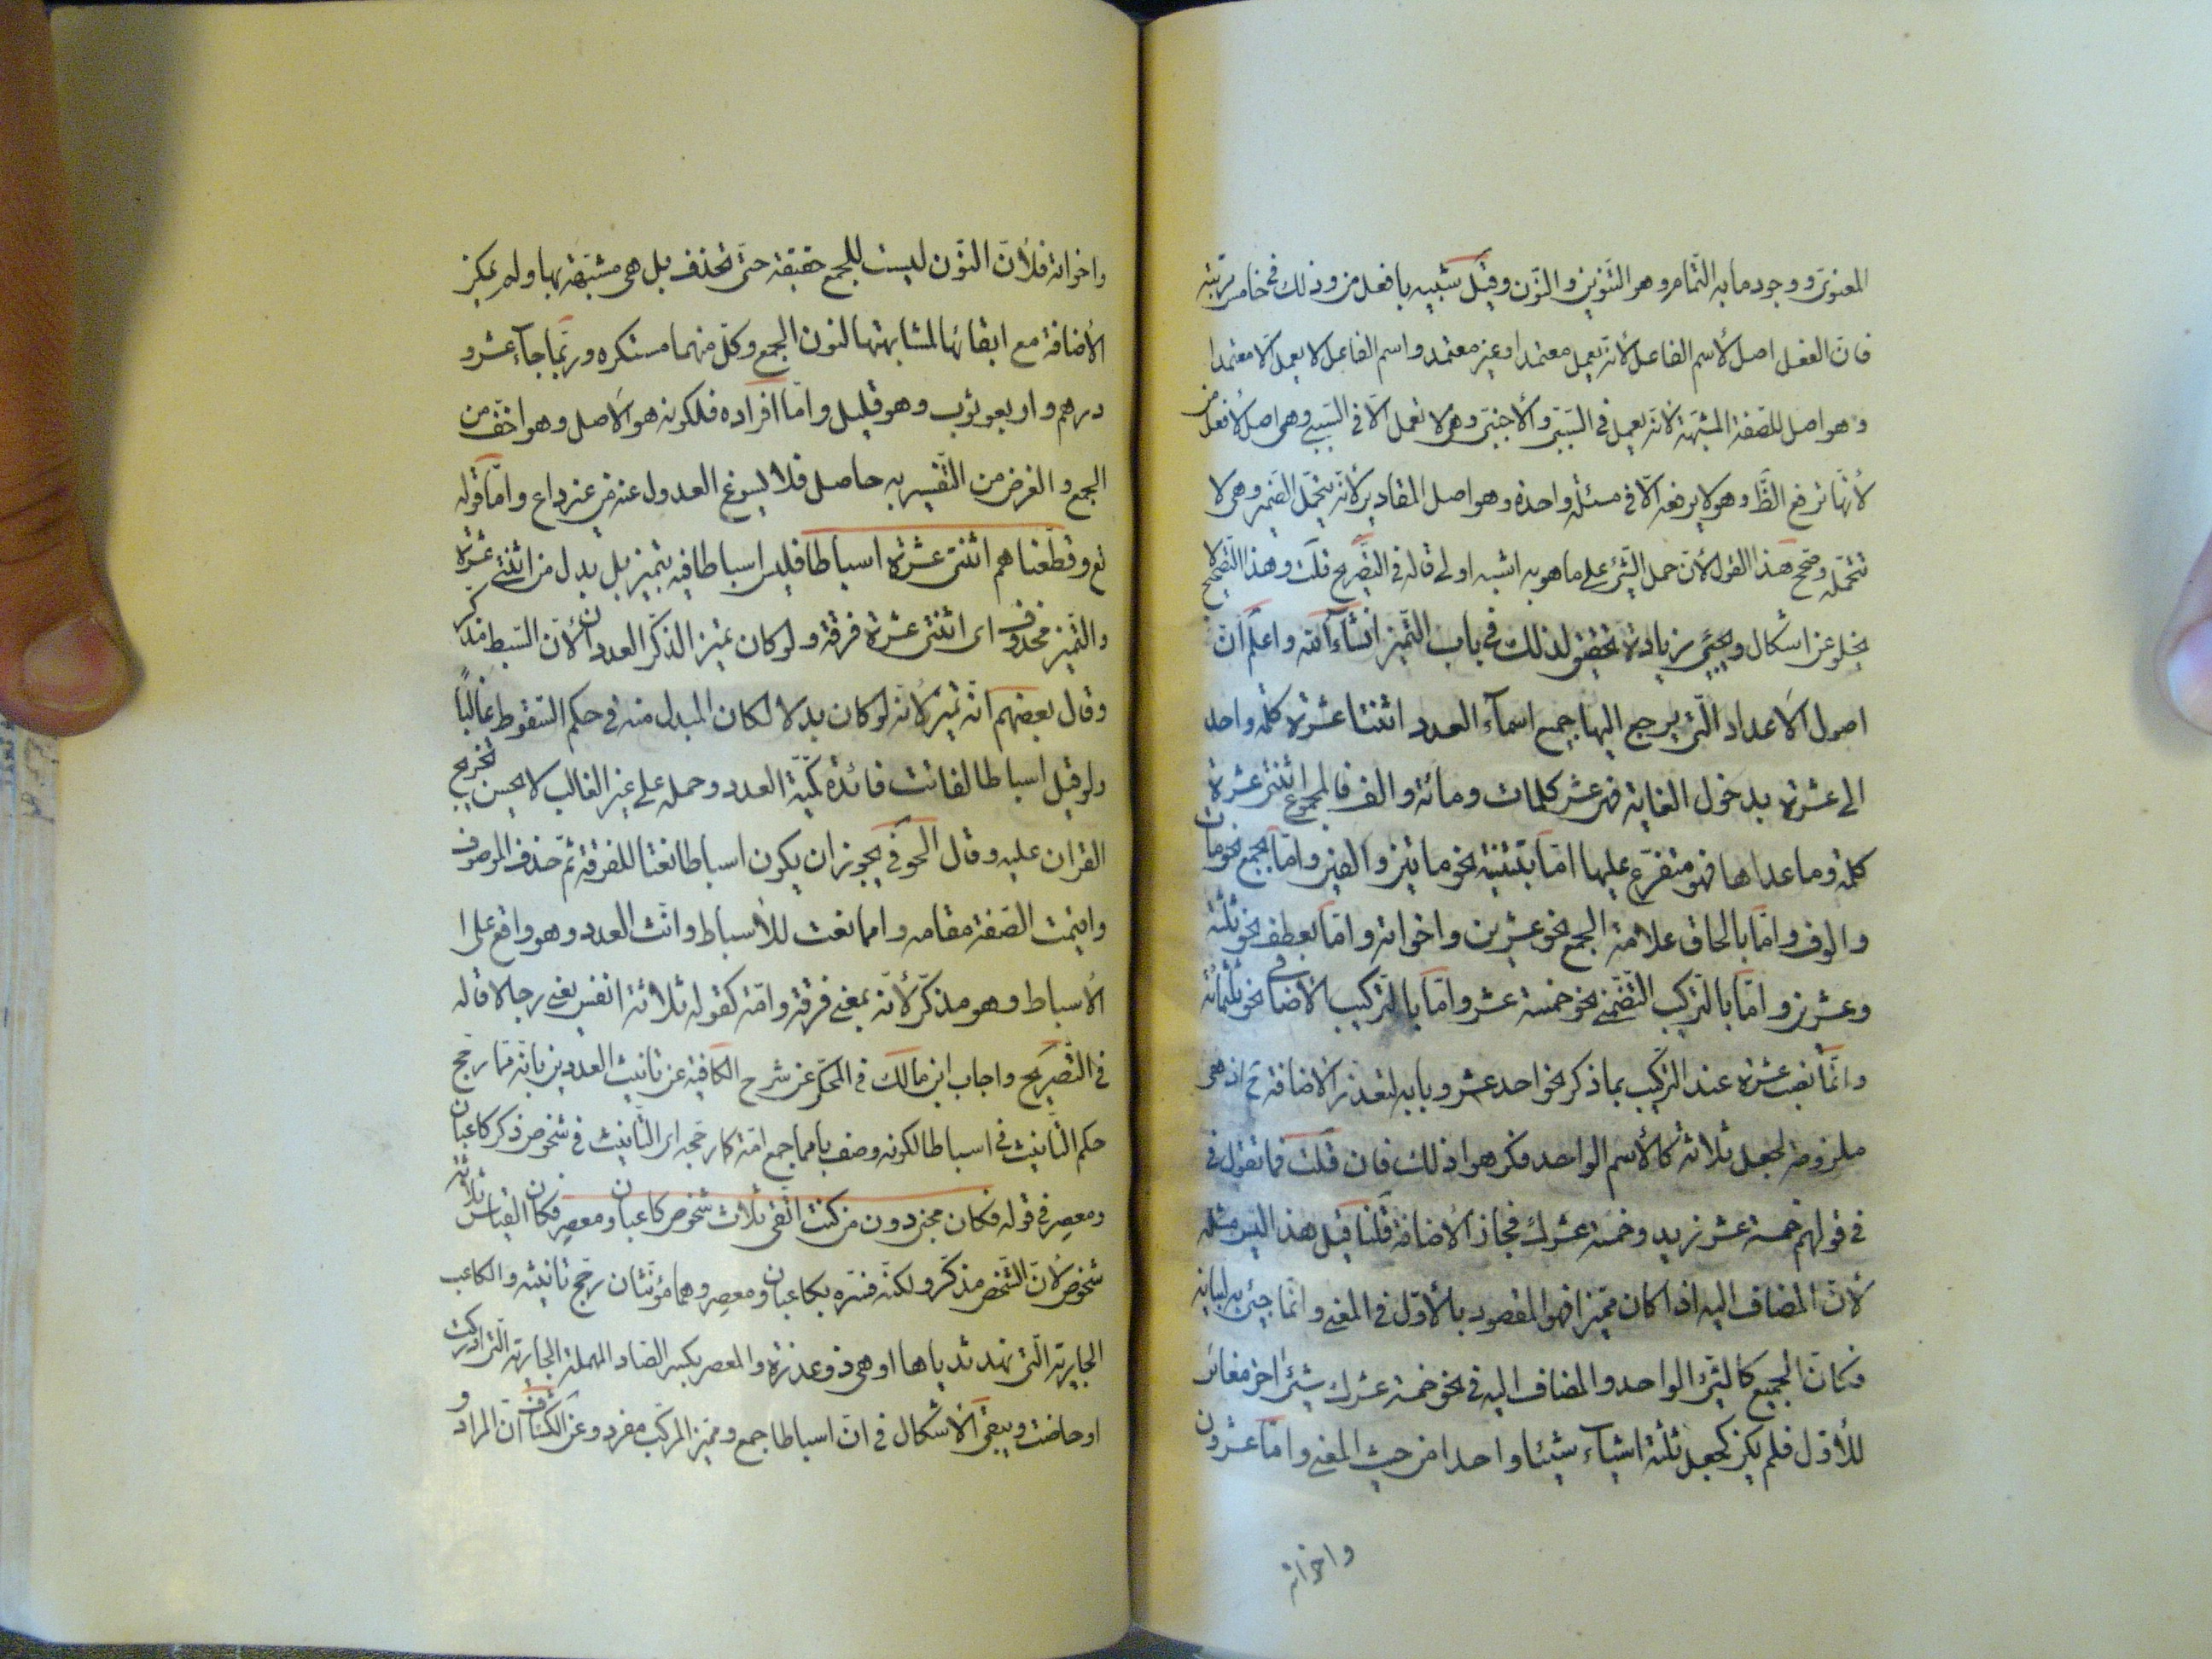 المعنوىّ ووجود ما به التّمام وهو التّنوين والنّون وقيل شبيه بافعل من وذلك فى خامس مرتبته
فانّ الفعل اصل لأسم الفاعل لأنّه يعمل معتمدا وغير معتمد واسم الفاعل لا يعمل الّا معتمدا
وهو اصل للصّفة المشبّهة لأنّه يعمل فى السّببىّ والأجنبىّ وهى لا تعمل الّا فى السّببى وهى اصل لأفعل من
لأنّها ترفع الظّ وهو لا يرفعه الّا فى مسئلة واحدة وهو اصل المقادير لأنّه يتحمّل الضّمير وهى لا
تتحمّله وصحّح هذا القول لأنّ حمل الشّئ على ما هو به اشبه اولى قاله فى التّصريح قلت وهذا التّصحيح لا
يخلو عن اشكال ويجيئ زيادة تحقيق لذلك فى باب التّميز انشاء اللّه واعلم انّ
اصول الأعداد الّتى يرجع اليها جميع اسمآء العدد اثنتا عشرة كلمة واحد
الى عشرة بدخول الغاية فهى عشر كلمات ومائة والف فالمجموع اثنتى عشرة
كلمة وما عداها فهو متفرّع عليها امّا بتثنية نحو مائتين والفين وامّا بجمع نحو مآت
والوف وامّا بالحاق علامة الجمع نحو عشرين واخواته وامّا بعطف نحو ثلثة
وعشرين وامّا بالتركيب التّضمّنى نحو خمسة عشر وامّا بالتّركيب الأضافى نحو ثلثمائة
وانّما نصب عشرة عند التركيب بما ذكر نحو احد عشر وبابه لتعذر الأضافة ح اذ هى
ملزومة لجعل ثلاثة كالأسم الواحد فكرهوا ذلك فان قلت فما تقول فى
فى قولهم خمسة عشر زيد وخمسة عشرك فجاز الأضافة قلنا قيل هذا ليس مثله
لأنّ المضاف اليه اذا كان مميّزا فهو المقصود بالأوّل فى المعنى وانّما جيئ به لبيانه
فكانّ الجميع كالشّئ الواحد والمضاف اليه فى نحو خمسة عشرك شيئ اخر مغائر
للأوّل فلم يكن كجعل ثلثة اشيآء شيئا واحدا من حيث المعنى وامّا عشرون
واخواته
واخواته فلأنّ النّون ليست للجمع حقيقة حتّى تحذف بل هى مشبّهة بها ولم يمكن
الأضافة مع ابقائها لمشابهتها لنون الجمع وكلّ منهما مستكره وربّما جآء عشرو
درهم واربعو ثوب وهو قليل وامّا افراده فلكونه هو الأصل وهو اخفّ من
الجمع والغرض من التّفسير به حاصل فلا يسوغ العدول عنه من غير داع وامّا قوله
تع وقطّعناهم اثنتى عشرة اسباطا فليس اسباطا فيه بتميز بل بدل من اثنتى عشرة
والتّميز محذوف اى اثنتى عشرة فرقة ولو كان تميز الذكّر العددان لأنّ السّبط مذكر
وقال بعضهم انّه تميز لأنّه لو كان بدلا لكان المبدل منه فى حكم السّقوط غالبًا
ولو قيل اسباطا لفاتت فائدة كمّيّة العدد وحمله على غير الغالب لا يحسن تخريج
القران عليه وقال الحوفى يجوز ان يكون اسباطا نعتا للفرقة ثمّ حذف الموصوف
واقيمت الصّفة مقامه وامما نعت للأسباط وانّث العدد وهو واقع على ا
الأسباط وهو مذكّر لأنّه بمعنى فرقة وامّة كقوله ثلاثة انفس يعنى رجالا قاله
فى التّصريح واجاب ابن مالك فى المحكّر عن شرح الكافية عن تانيث العددين بانّه ممّا رجّح
حكم التّانيث فى اسباطا لكونه وصف بامما جمع امّة كما رجّحه اى التّانيث فى شخوص ذكر كاعبان
ومعصر فى قوله فكان مجنّى دون من كنت اتّقى ثلاث شخوص كاعبان ومعصر فكان القياس ثلاثة
شخوص لأنّ الشّخص مذكّر ولكنّه فسّره بكاعبان ومعصر وهما مؤنّثان رجّح تانيثه والكاعب
الجارية الّتى نهد ثدياها او هى ذو عذرة والمعصر بكسر الصّاد المهملة الجارية الّتى ادركت
او حاضت ويبقى الأشكال فى انّ اسباطا جمع ومميّز المركّب مفرد وعن الكشّاف انّ المراد و